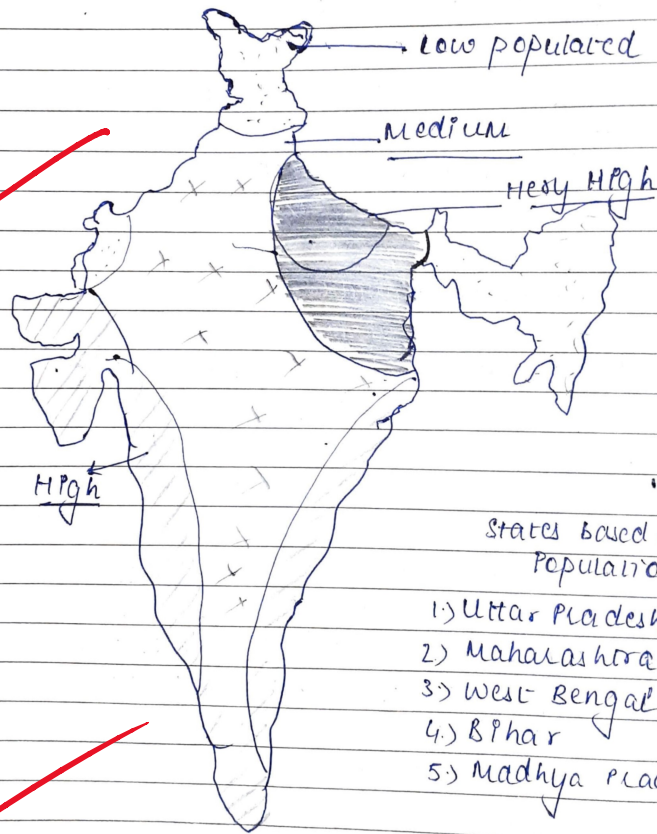 Low populated
Medium
Hery High
High
States based
Populatio
1.) Uttar Pradesh
2.) Maharashtra
3.) West Bengal
4.) Bihar
5.) Madhya Prad